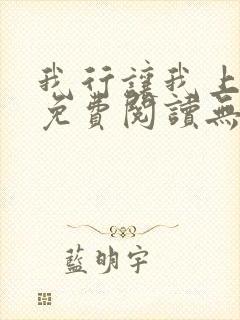 我行讓我上
免費閱讀無
藍明宇